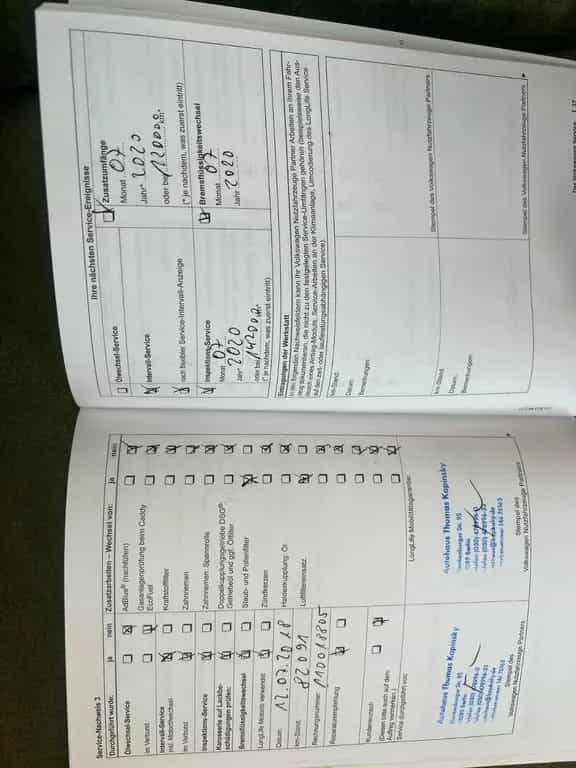 Service-Nachweis 3
Durchgeführt wurde: ja nein
Ölwechsel-Service
im Verbund
Intervall-Service
inkl. Motorölwechsel
im Verbund
Inspektions-Service
Karosserie auf Lackbe-
schädigungen prüfen:
Bremsflüssigkeitswechsel
LongLife Motoröl verwendet:
Datum: 12.07.2018
km-Stand: 82091
Rechnungsnummer: 110018805
Reparaturempfehlung
Kundenwunsch
(Diesen bitte auch auf dem
Auftrag vermerken.)
Service durchgeführt von:
Autohaus Thomas Kapinsky
Stempel des
Volkswagen Nutzfahrzeuge Partners
Zusatzarbeiten – Wechsel von: ja nein
AdBlue® (nachfüllen)
Gasanlagenprüfung beim Caddy
EcoFuel
Kraftstofffilter
Zahnriemen
Zahnriemen: Spannrolle
Doppelkupplungsgetriebe DSG®
Getriebeöl und ggf. Ölfilter
Staub- und Pollenfilter
Zündkerzen
Haldexkupplung: Öl
Luftfiltereinsatz
LongLife Mobilitätsgarantie:
Autohaus Thomas Kapinsky
Stempel des
Volkswagen Nutzfahrzeuge Partners
Ihre nächsten Service-Ereignisse
Ölwechsel-Service
Intervall-Service
nach fixer Service-Intervall-Anzeige
Inspektions-Service
Monat 07
Jahr* 2020
oder bei 142000 km*
(* je nachdem, was zuerst eintritt)
Zusatzumfänge
Monat 07
Jahr* 2020
oder bei 120000 km*
(* je nachdem, was zuerst eintritt)
Bremsflüssigkeitswechsel
Monat 07
Jahr 2020
Eintragungen der Werkstatt
In den folgenden Nachweisfeldern kann Ihr Volkswagen Nutzfahrzeuge Partner Arbeiten an Ihrem Fahr-
zeug dokumentieren, die nicht zu den festgelegten Service-Umfängen gehören (beispielsweise den Aus-
tausch eines Airbag-Moduls, Service-Arbeiten an der Klimaanlage, Umcodierung des LongLife Service
auf den zeit- oder laufleistungsabhängigen Service).
km-Stand:
Datum:
Bemerkungen:
Stempel des Volkswagen Nutzfahrzeuge Partners
km-Stand:
Datum:
Bemerkungen:
Stempel des Volkswagen Nutzfahrzeuge Partners